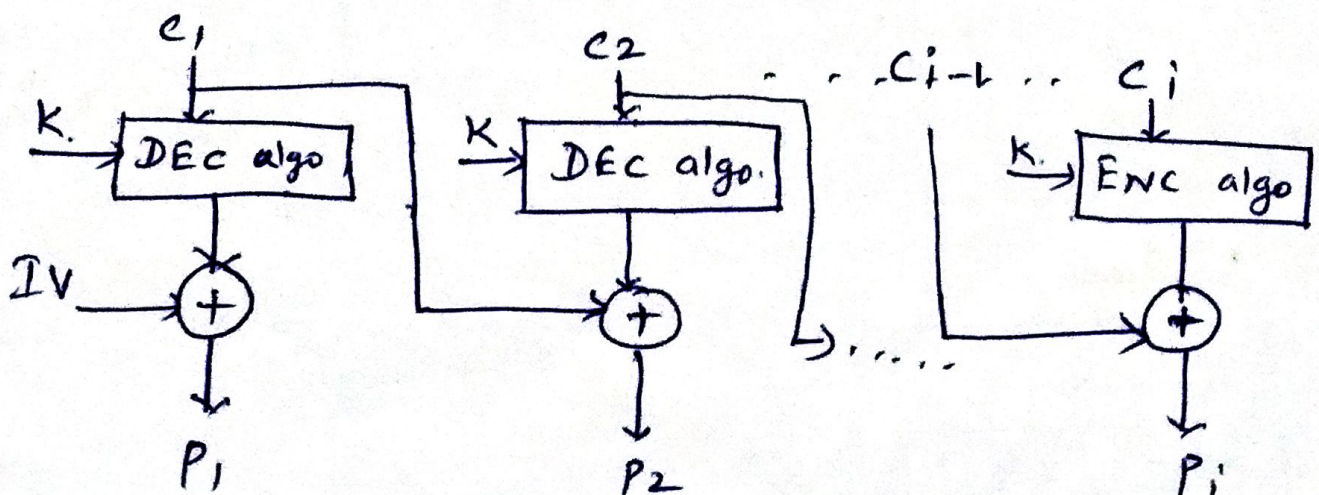 C1 C2 . . . Ci-1 .. Ci
K. DEC algo K DEC algo. K. ENC algo
IV + + +
.....
P1 P2 Pi